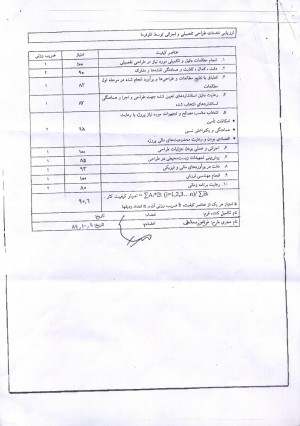 ارزیابی خدمات طراحی تفصیلی و اجرائی توسط کارفرما
عناصر کیفیت امتیاز ضریب وزنی
۱. انجام مطالعات دقیق و تکمیلی مورد نیاز در طراحی تفصیلی ۱۰۰ ۱
۲. دقت، کمال و کفایت و هماهنگی نقشه‌ها و مدارک ۹۰ ۲
۳. انطباق با نتایج مطالعات و طراحی‌ها و برآورد انجام شده در مرحله اول مطالعات ۸۲ ۱
۴. رعایت دقیق استانداردهای تعیین شده جهت طراحی و اجرا و هماهنگی استانداردهای انتخاب شده
۵. انتخاب مناسب مصالح و تجهیزات مورد نیاز پروژه با رعایت
• امکانات تأمین
• هماهنگی و یکنواختی نسبی ۹۵ ۲
• اقتصادی بودن و رعایت محدودیت‌های مالی پروژه
۶. اجرائی و عملی بودن جزئیات طراحی ۱۰۰ ۱
۷. پیش‌بینی تمهیدات زیست‌محیطی در طراحی ۸۵ ۱
۸. دقت در برآوردهای مالی و فیزیکی ۹۳ ۱
۹. انجام مهندسی ارزش ۱
۱۰. رعایت برنامه زمانی ۸۰ ۲
امتیاز کیفیت کار = ∑Ai*Bi (i=1,2,3,...n)/ ∑Bi
۹۰,۶
نام تکمیل کننده فرم: امضاء: تاریخ:
نام مدیر طرح: امضاء: تاریخ: